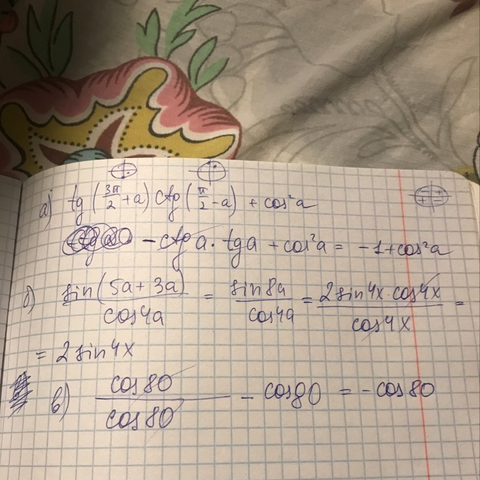 а) tg(3π/2 + a) ctg(π/2 - a) + cos²a
- ctg a · tg a + cos²a = -1 + cos²a
б) sin(5a + 3a)/cos4a = sin8a/cos4a = 2sin4x · cos4x/cos4x =
= 2sin4x
в) cos80/cos80 - cos80 = -cos80